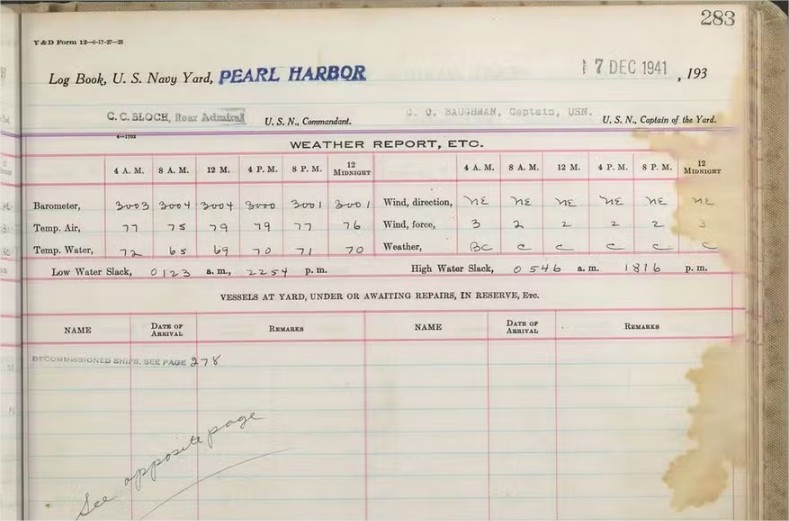 283
Y & D Form 12—6-17-27—25
Log Book, U. S. Navy Yard, PEARL HARBOR 17 DEC 1941, 193
C. C. BLOCH, Rear Admiral U. S. N., Commandant. C. Q. BAUGHMAN, Captain, USN. U. S. N., Captain of the Yard.
WEATHER REPORT, ETC.
4 A. M. 8 A. M. 12 M. 4 P. M. 8 P. M. 12 MIDNIGHT 4 A. M. 8 A. M. 12 M. 4 P. M. 8 P. M. 12 MIDNIGHT
Barometer, 3003 3004 3004 3000 3001 3001 Wind, direction, NE NE NE NE NE NE
Temp. Air, 77 75 79 79 77 76 Wind, force, 3 2 2 2 2 3
Temp. Water, 72 65 69 70 71 70 Weather, BC C C C C C
Low Water Slack, 0123 a. m., 2254 p. m. High Water Slack, 0546 a. m. 1816 p. m.
VESSELS AT YARD, UNDER OR AWAITING REPAIRS, IN RESERVE, Etc.
NAME DATE OF ARRIVAL REMARKS NAME DATE OF ARRIVAL REMARKS
DECOMMISSIONED SHIPS, SEE PAGE 278
See opposite page